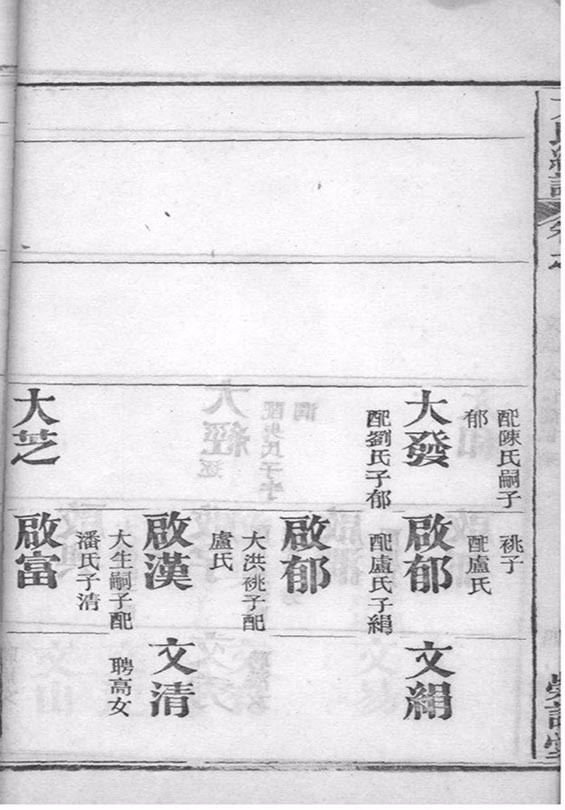 配陳氏嗣子
郁
大發
配劉氏子郁
大芝
祧子
配盧氏
啟郁
配盧氏子絹
啟郁
大洪祧子配
盧氏
啟漢
大生嗣子配
潘氏子清
啟富
文絹
文清
聘高女